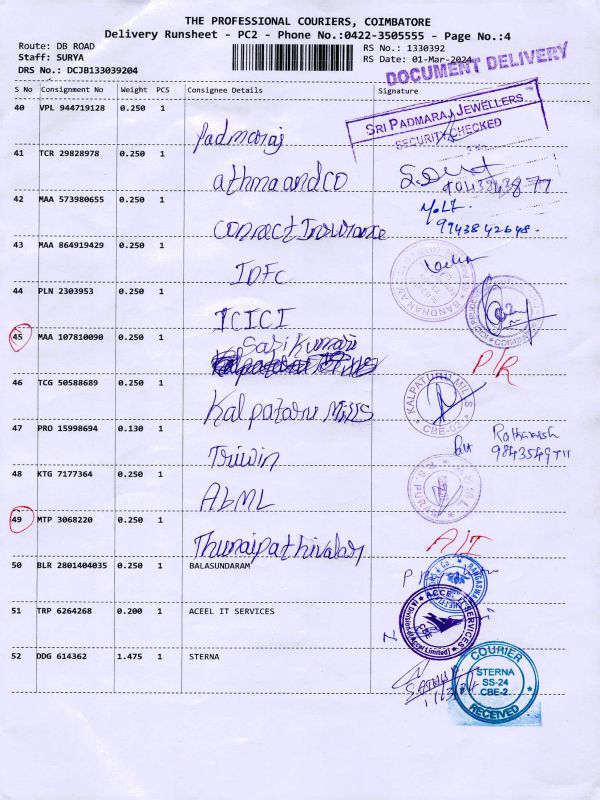 THE PROFESSIONAL COURIERS, COIMBATORE
Delivery Runsheet - PC2 - Phone No.:0422-3505555 - Page No.:4
Route: DB ROAD
Staff: SURYA
DRS No.: DCJB133039204
RS No.: 1330392
RS Date: 01-Mar-2024
DOCUMENT DELIVERY
S No Consignment No Weight PCS Consignee Details Signature
40 VPL 944719128 0.250 1 Padmaraj
SRI PADMARAJ JEWELLERS
SECURITY CHECKED
41 TCR 29828978 0.250 1 athmaandco
42 MAA 573980655 0.250 1 Connect Insurance
9943842648.
43 MAA 864919429 0.250 1 IDFC
44 PLN 2303953 0.250 1 ICICI
45 MAA 107810090 0.250 1 Sasikumari P/R
46 TCG 50588689 0.250 1 Kalpataru Mills
KALPATARU MILLS
CBE-02
47 PRO 15998694 0.130 1 Triwin
48 KTG 7177364 0.250 1 ABML
49 MTP 3068220 0.250 1 Thunaipathivalar
50 BLR 2801404035 0.250 1 BALASUNDARAM
51 TRP 6264268 0.200 1 ACEEL IT SERVICES
ACCEL IT SERVICES
(A Division of Accel Limited)
CBE
52 DDG 614362 1.475 1 STERNA
COURIER
STERNA
SS-24
CBE-2
RECEIVED